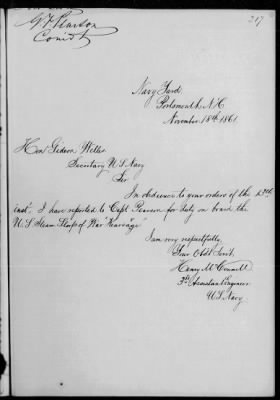 G F Pearson
Comdt
217
Navy Yard
Portsmouth, N.H.
November 18th 1861
Hon Gideon Welles
Secretary U S Navy
Sir
In obedience to your orders of the 13th
inst, I have reported to Capt Pearson for duty on board the
U. S Steam Sloop of War "Kearsage"
I am very respectfully,
Your Obdt Servt,
Henry McConnell
3d Assistant Engineer
U. S. Navy